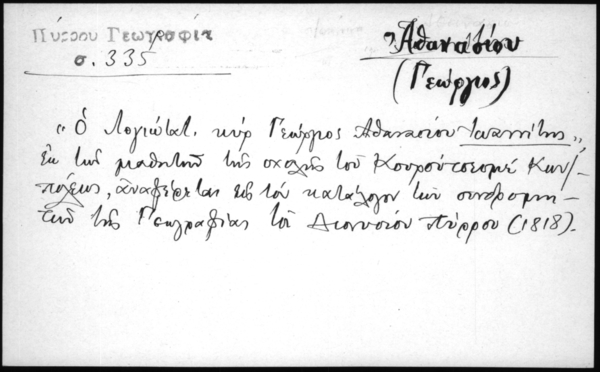 Πύρρου Γεωγραφία
σ. 335
Ἀθανασίου
(Γεώργιος)
"Ὁ Λογιώτατ. κύρ Γεώργιος Ἀθανασίου Ἰωαννίτης„
ἐκ τῶν μαθητῶν τῆς σχολῆς τοῦ Κουρούτσεσμέ Κων/-
πόλεως, ἀναφέρεται εἰς τόν κατάλογον τῶν συνδρομη-
τῶν τῆς Γεωγραφίας τοῦ Διονυσίου Πύρρου (1818).